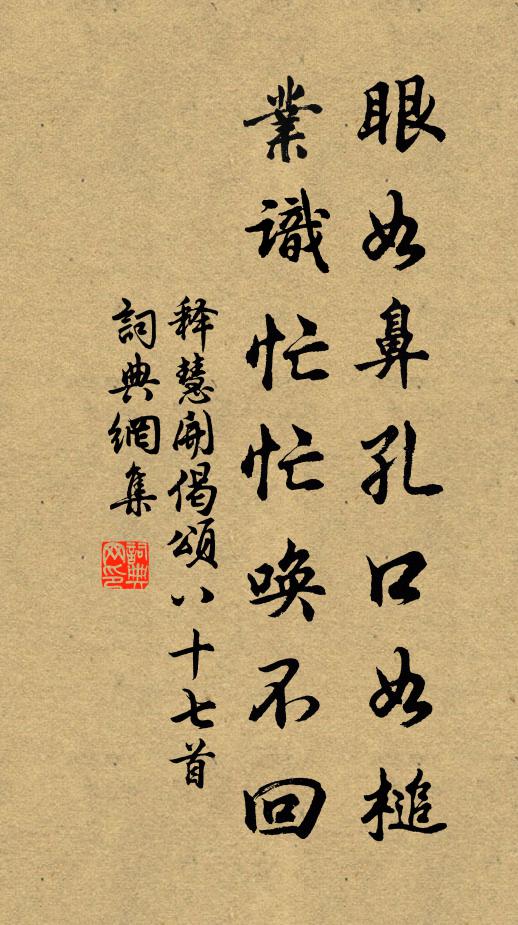 眼如鼻孔口如槌
業識忙忙喚不回
释慧開偈頌八十七首
詞典網集
詞典
网印